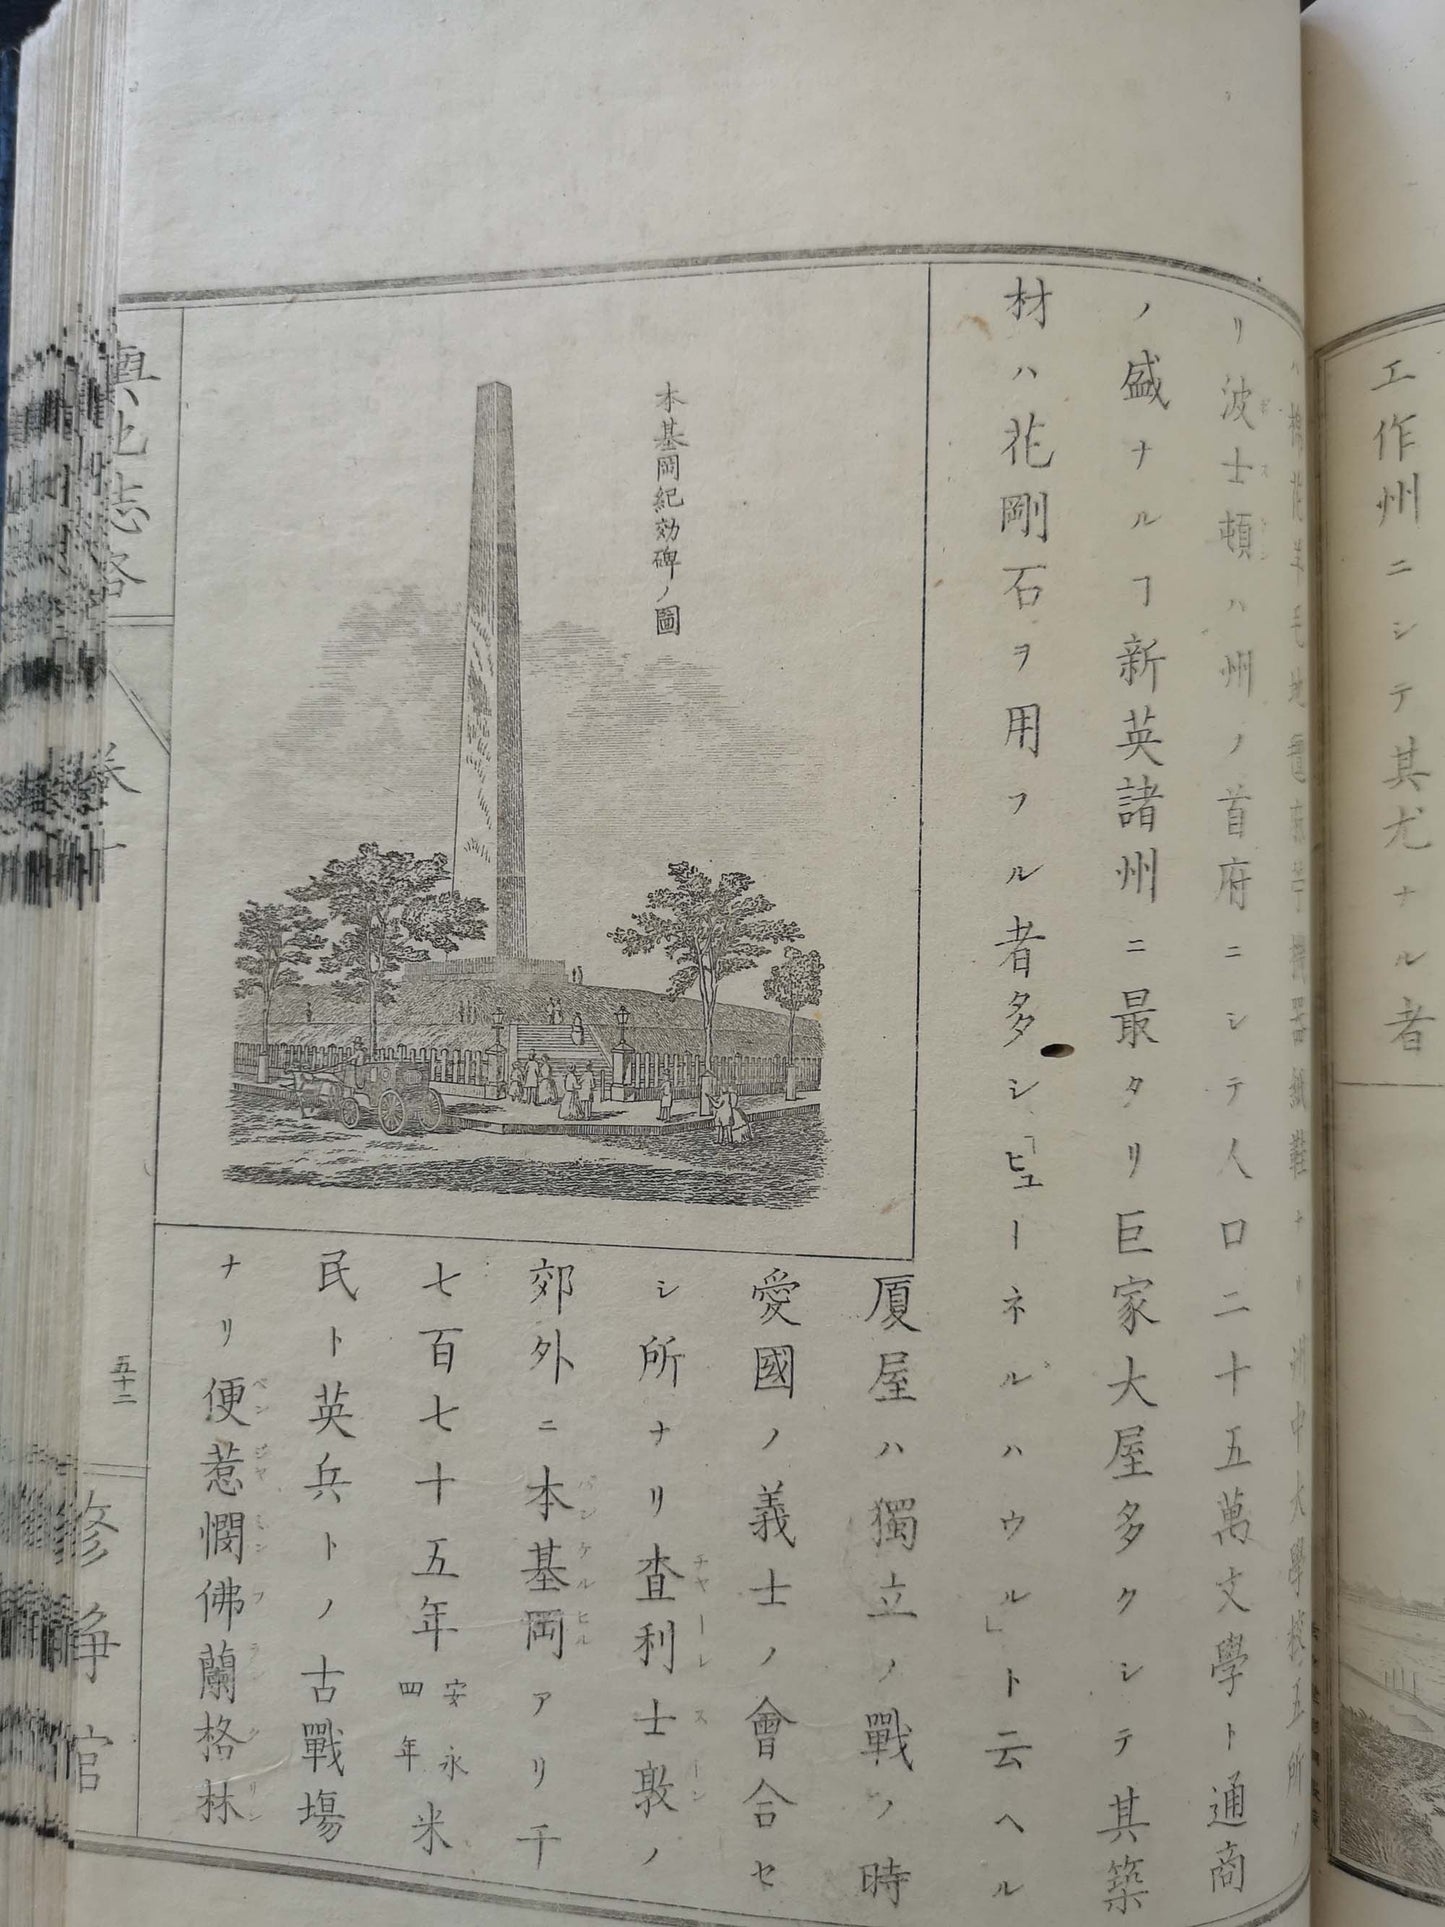 工作州ニシテ其尤ナル者
リ波士頓ハ州ノ首府ニシテ人口二十五萬文學ト通商
ボストン
ノ盛ナルヿ新英諸州ニ最タリ巨家大屋多クシテ其築
材ハ花剛石ヲ用フル者多シ「ヒューネルハウル」ト云ヘル
厦屋ハ獨立ノ戰ノ時
愛國ノ義士ノ會合セ
シ所ナリ査利士敦ノ
チヤーレスーン
郊外ニ本基岡アリ千
バンケルヒル
七百七十五年安永四年米
民ト英兵トノ古戰場
ナリ便惹憫佛蘭格林
ベンジヤミンフランクリン
本基岡紀効碑ノ圖
輿地志畧
卷十
五十二
修靜館